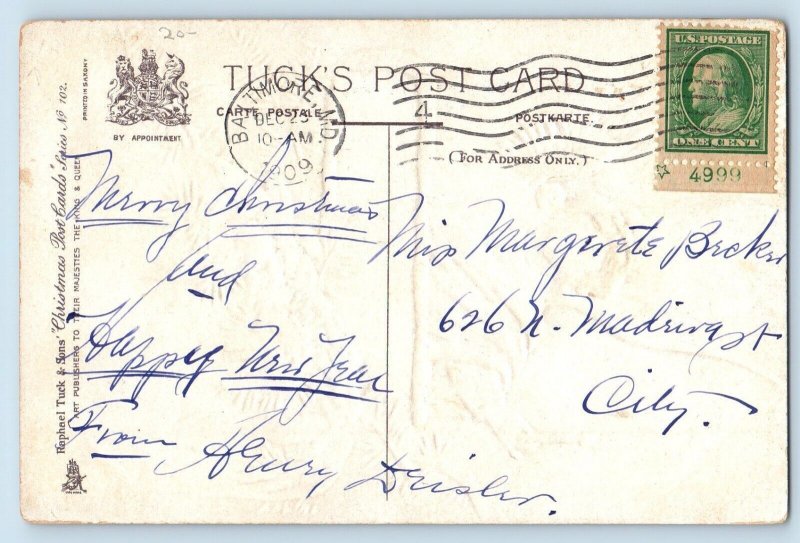 20-
TUCK'S POST CARD
CARTE POSTALE
POSTKARTE.
(FOR ADDRESS ONLY.)
BY APPOINTMENT
PRINTED IN SAXONY
Raphael Tuck & Sons' "Christmas" Post Cards Series No 102.
ART PUBLISHERS TO THEIR MAJESTIES THE KING & QUEEN
BALTIMORE, MD.
DEC 25
10-AM
1909
4
U.S. POSTAGE
ONE CENT
4999
Merry Christmas
and
Happy New Year
From Henry Deisler.
Miss Margerete Becker
626 N. Madeira st
City.